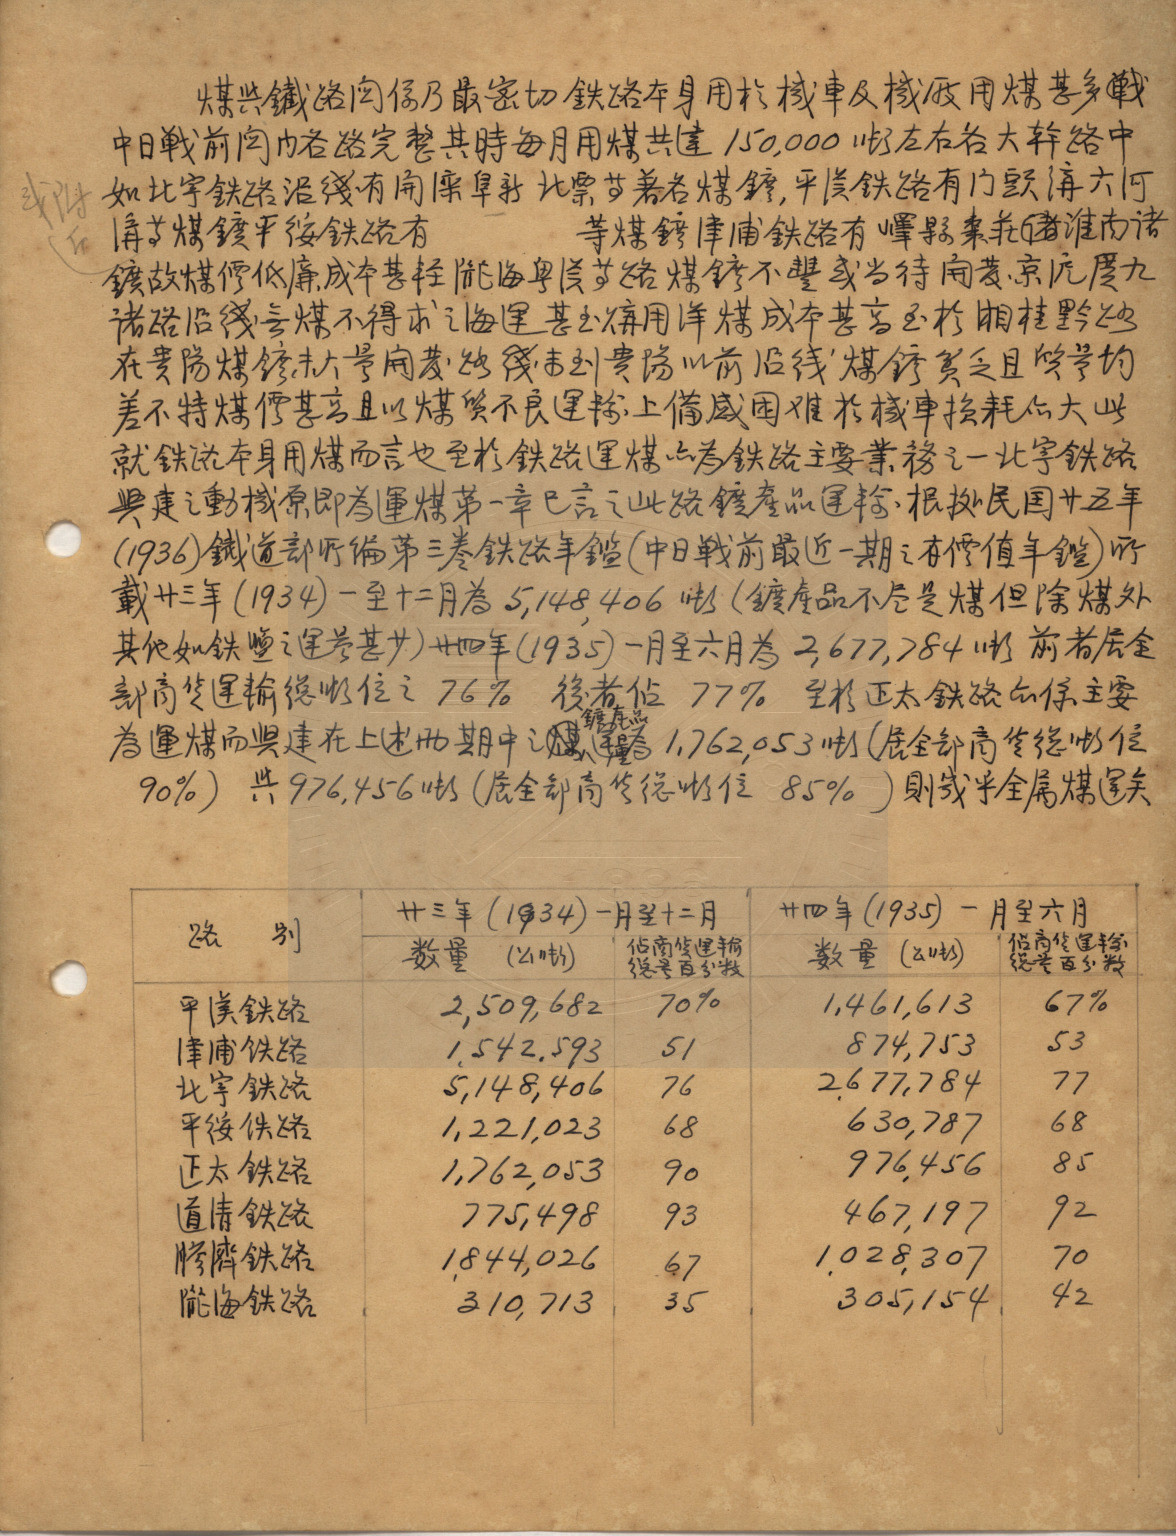 煤与鐵路関係乃最密切鉄路本身用於機車及機廠用煤甚多戰
中日戰前関内各路完整共時每月用煤共達150,000吨左右各大幹路中
如北宁鉄路沿綫有開灤阜新北票等著名煤鑛,平漢鉄路有门頭溝六河
溝等煤鑛平綏鉄路有 等煤鑛津浦鉄路有嶧縣棗莊淮南诸
或附后
鑛故煤價低廉成本甚輕隴海粤漢等路煤鑛不豐或当待開發.京沪廣九
诸路沿綫無煤不得求之海運甚至購用洋煤成本甚高至於湘桂黔路
在貴陽煤鑛未大量開發.路綫未到貴陽以前沿綫煤鑛貧乏且質量均
差不特煤價甚高且以煤質不良運輸上備感困难於機車损耗亦大此
就鉄路本身用煤而言也至於鉄路運煤亦為鉄路主要業務之一北宁鉄路
興建之動機原即為運煤第一章已言之此路鑛產品運輸.根据民国廿五年
(1936)鐵道部所编第三卷鉄路年鑑(中日戰前最近一期之有價值年鑑)所
載廿三年(1934)一至十二月為5,148,406吨(鑛產品不尽是煤但除煤外
其他如鉄鹽之運量甚少)廿四年(1935)一月至六月為2,677,784吨前者居全
部商货運輸總吨位之76% 後者佔77% 至於正太鉄路亦係主要
鑛產品
為運煤而興建在上述两期中之運量為1,762,053吨(居全部商货總吨位
90%) 与976,456吨(居全部商货總吨位85%)則或乎全属煤運矣
路別 廿三年(1934)一月至十二月 廿四年(1935)一月至六月
数量(公吨) 佔商货運輸總量百分数 数量(公吨) 佔商货運輸總量百分数
平漢鉄路 2,509,682 70% 1,461,613 67%
津浦鉄路 1,542,593 51 874,753 53
北宁鉄路 5,148,406 76 2,677,784 77
平綏鉄路 1,221,023 68 630,787 68
正太鉄路 1,762,053 90 976,456 85
道清鉄路 775,498 93 467,197 92
膠濟鉄路 1,844,026 67 1,028,307 70
隴海鉄路 310,713 35 305,154 42